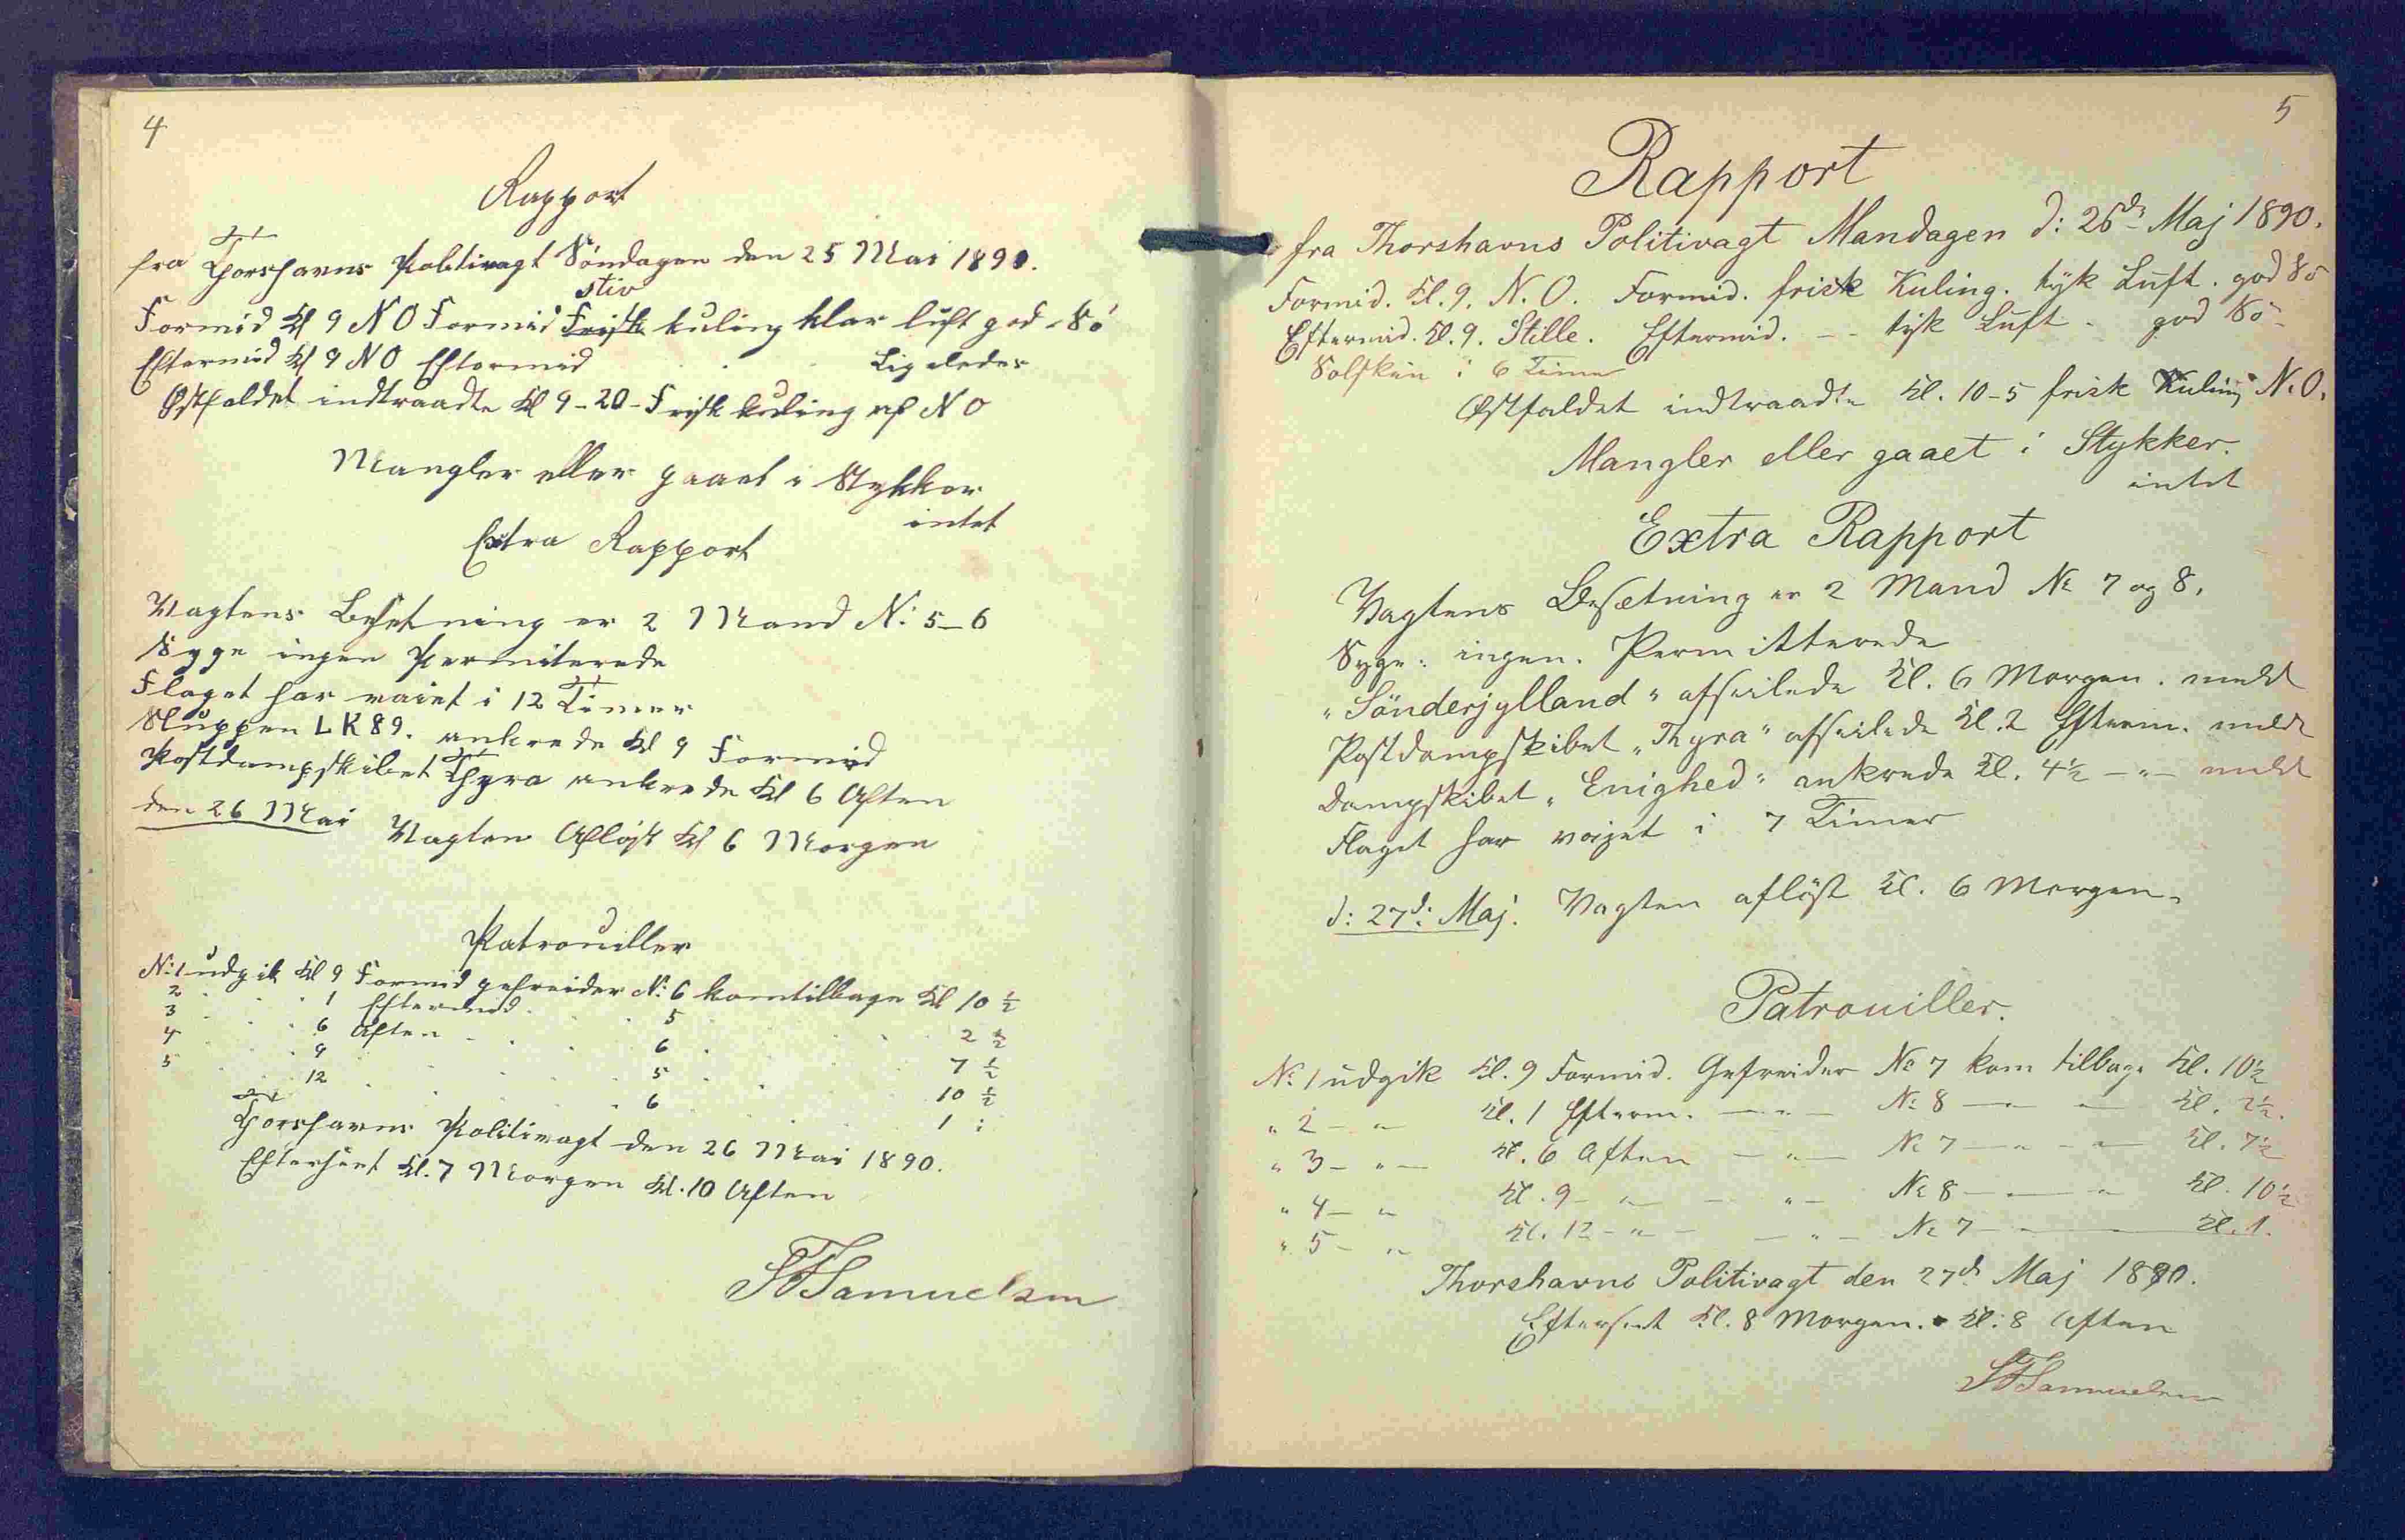 4
Rapport
fra Thorshavns Politivagt Söndagen den 25 Mai 1890.
stiv
Formid Kl 9 NO Formid Frisk kuling klar luft god Sö
Eftermid Kl 9 NO Eftermid " " Ligeledes
Østfaldet indtraadte Kl 9-20- Frisk kuling af NO
Mangler eller gaaet i Stykker
intet
Extra Rapport
Vagtens Besetning er 2 Mand No: 5-6
Syge ingen Permiterede
Flaget har vaiet i 12 Timer
Sluppen LK89. ankrede Kl 9 Formid
Postdampskibet Thyra ankrede Kl 6 Aften
den 26 Mai Vagten Afløst Kl 6 Morgen
Patrouiller
No: 1 udgik Kl 9 Formid gefreider No: 6 kom tilbage Kl 10 ½
2 " " 1 Eftermid " " 5 " " 2 ½
3 " " 6 Aften " " 6 " " 7 ½
4 " " 9 " " 5 " " 10 ½
5 " " 12 " " 6 " " 1 :
Thorshavns Politivagt den 26 Mai 1890.
Efterseet Kl. 7 Morgen Kl. 10 Aften
Samuelsen
5
Rapport
fra Thorshavns Politivagt Mandagen d: 26de Maj 1890.
Formid. Kl. 9. N. O. Formid. frisk Kuling. tyk Luft. god Sö
Eftermid. Kl. 9. Stille. Eftermid. - - tyk Luft. god Sö
Solskin i 6 Timer
Østfaldet indtraadte Kl. 10-5 frisk Kuling N. O.
Mangler eller gaaet i Stykker.
intet
Extra Rapport
Vagtens Besætning er 2 Mand No 7 og 8.
Syge: ingen. Permitterede
"Sönderjylland" afseilede Kl. 6 Morgen. meldt
Postdampskibet "Thyra" afseilede Kl. 2 Efterm. meldt
Dampskibet "Enighed" ankrede Kl. 4½ — " — meldt
Flaget har vajet i 7 Timer
d: 27d: Maj. Vagten afløst Kl. 6 Morgen.
Patrouiller.
No 1 udgik Kl. 9 Formid. Gefreider No 7 kom tilbage Kl. 10½
" 2 - " - Kl. 1 Efterm. - " - No 8 - " - " - Kl. 2½.
" 3 - " - Kl. 6 Aften - " - No 7 - " - " - Kl. 7½
" 4 - " - Kl. 9 - " - - " - No 8 - " - " - Kl. 10½
" 5 - " - Kl. 12 - " - - " - No 7 - " - " - Kl. 1.
Thorshavns Politivagt den 27d Maj 1890.
Efterseet Kl. 8 Morgen. Kl: 8 Aften
Samuelsen